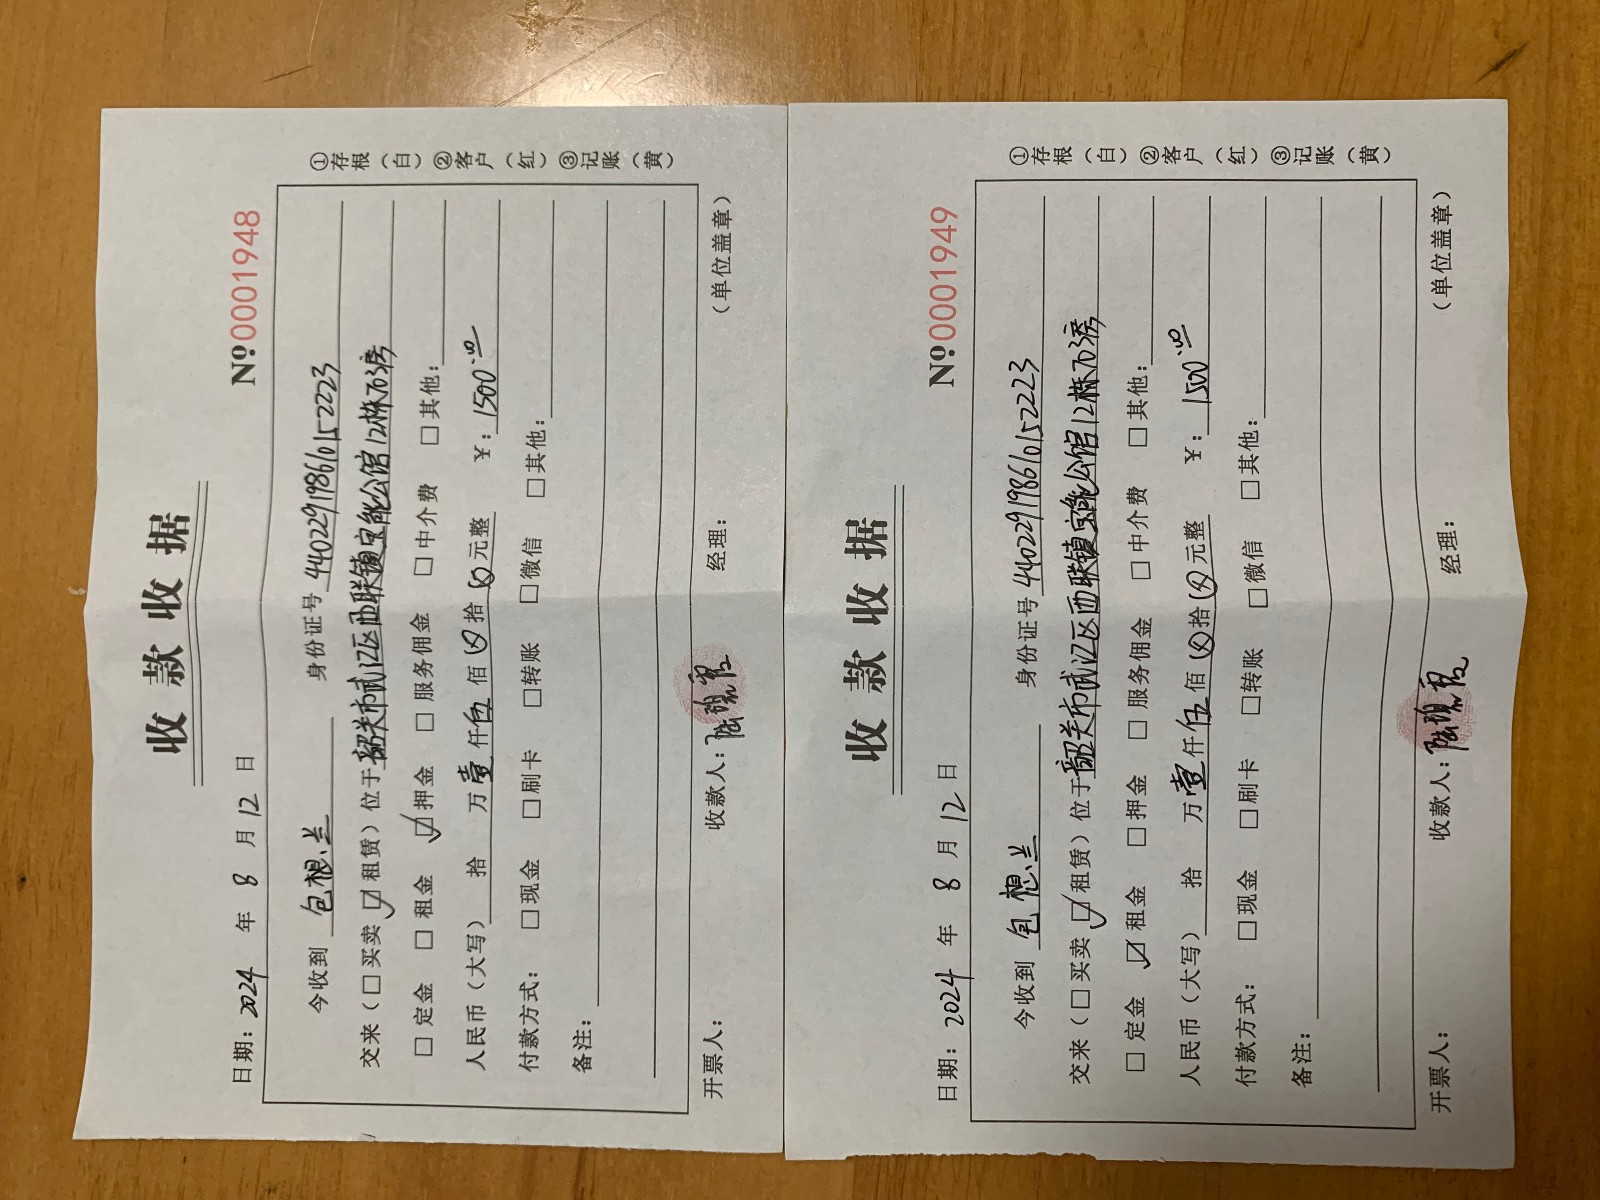 收款收据
№0001948
日期：2024 年 8 月 12 日
今收到 包想兰 身份证号 440229198610152223
交来（□买卖 ☑租赁）位于韶关市武江区西联镇宝能公馆12栋705房
□定金 □租金 ☑押金 □服务佣金 □中介费 □其他：
人民币（大写） 拾 万壹仟伍佰⊗拾⊗元整 ￥：1500.00
付款方式：□现金 □刷卡 □转账 □微信 □其他：
备注：
开票人： 收款人： 经理： （单位盖章）
①存根（白）②客户（红）③记账（黄）
收款收据
№0001949
日期：2024 年 8 月 12 日
今收到 包想兰 身份证号 440229198610152223
交来（□买卖 ☑租赁）位于韶关市武江区西联镇宝能公馆12栋705房
□定金 ☑租金 □押金 □服务佣金 □中介费 □其他：
人民币（大写） 拾 万壹仟伍佰⊗拾⊗元整 ￥：1500.00
付款方式：□现金 □刷卡 □转账 □微信 □其他：
备注：
开票人： 收款人： 经理： （单位盖章）
①存根（白）②客户（红）③记账（黄）